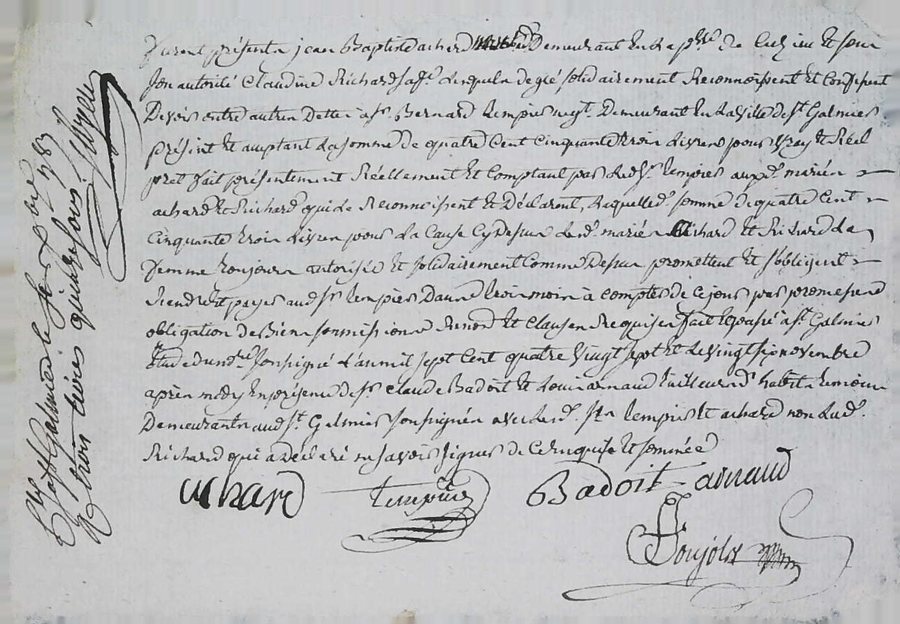 furent présents jean Baptiste achard Demeurant En la psse de Cuzieu Et sous
son autorité Claudine Richard sa fe Lesquels de gré solidairement Reconnoissent Et Confessent
Devoir entre autres Dettes a sr Bernard Tempier negt Demeurant En la ville de st Galmier
présent Et acceptant La somme de quatre Cent cinquante trois Livres pour vray Et Réel
pret fait présentement Réellement Et Comptant par Led sr tempier aux ps mariés
achard Et Richard qui Le Reconnoissent Et Déclarent, Laquelle somme de quatre Cent
Cinquante trois Livres pour La Cause Cy dessus Les ds mariés achard Et Richard La
femme toujours autorisée Et solidairement Comme Dessus promettent Et s'obligent
Rendre Et payer aud sr tempier Dans trois mois à Compter de Ce jour par promesse
obligation de Biens soumissions Renons Et Clauses Requises fait Et passé a st Galmier
Etude du nre soussigné L'an mil sept Cent quatre vingt sept Et Le vingt six novembre
après mody En présence de sr Claude Badoit Et Louis arnaud tailleur ds habits temoins
Demeurants aud st Galmier soussignés avec Les d. srs tempier Et achard non Lad.
Richard qui a déclaré ne savoir signer de Ce Enquise Et sommée
achard tempier Badoit arnaud
Poujols
à st Galmier le
trois livres quinze sous